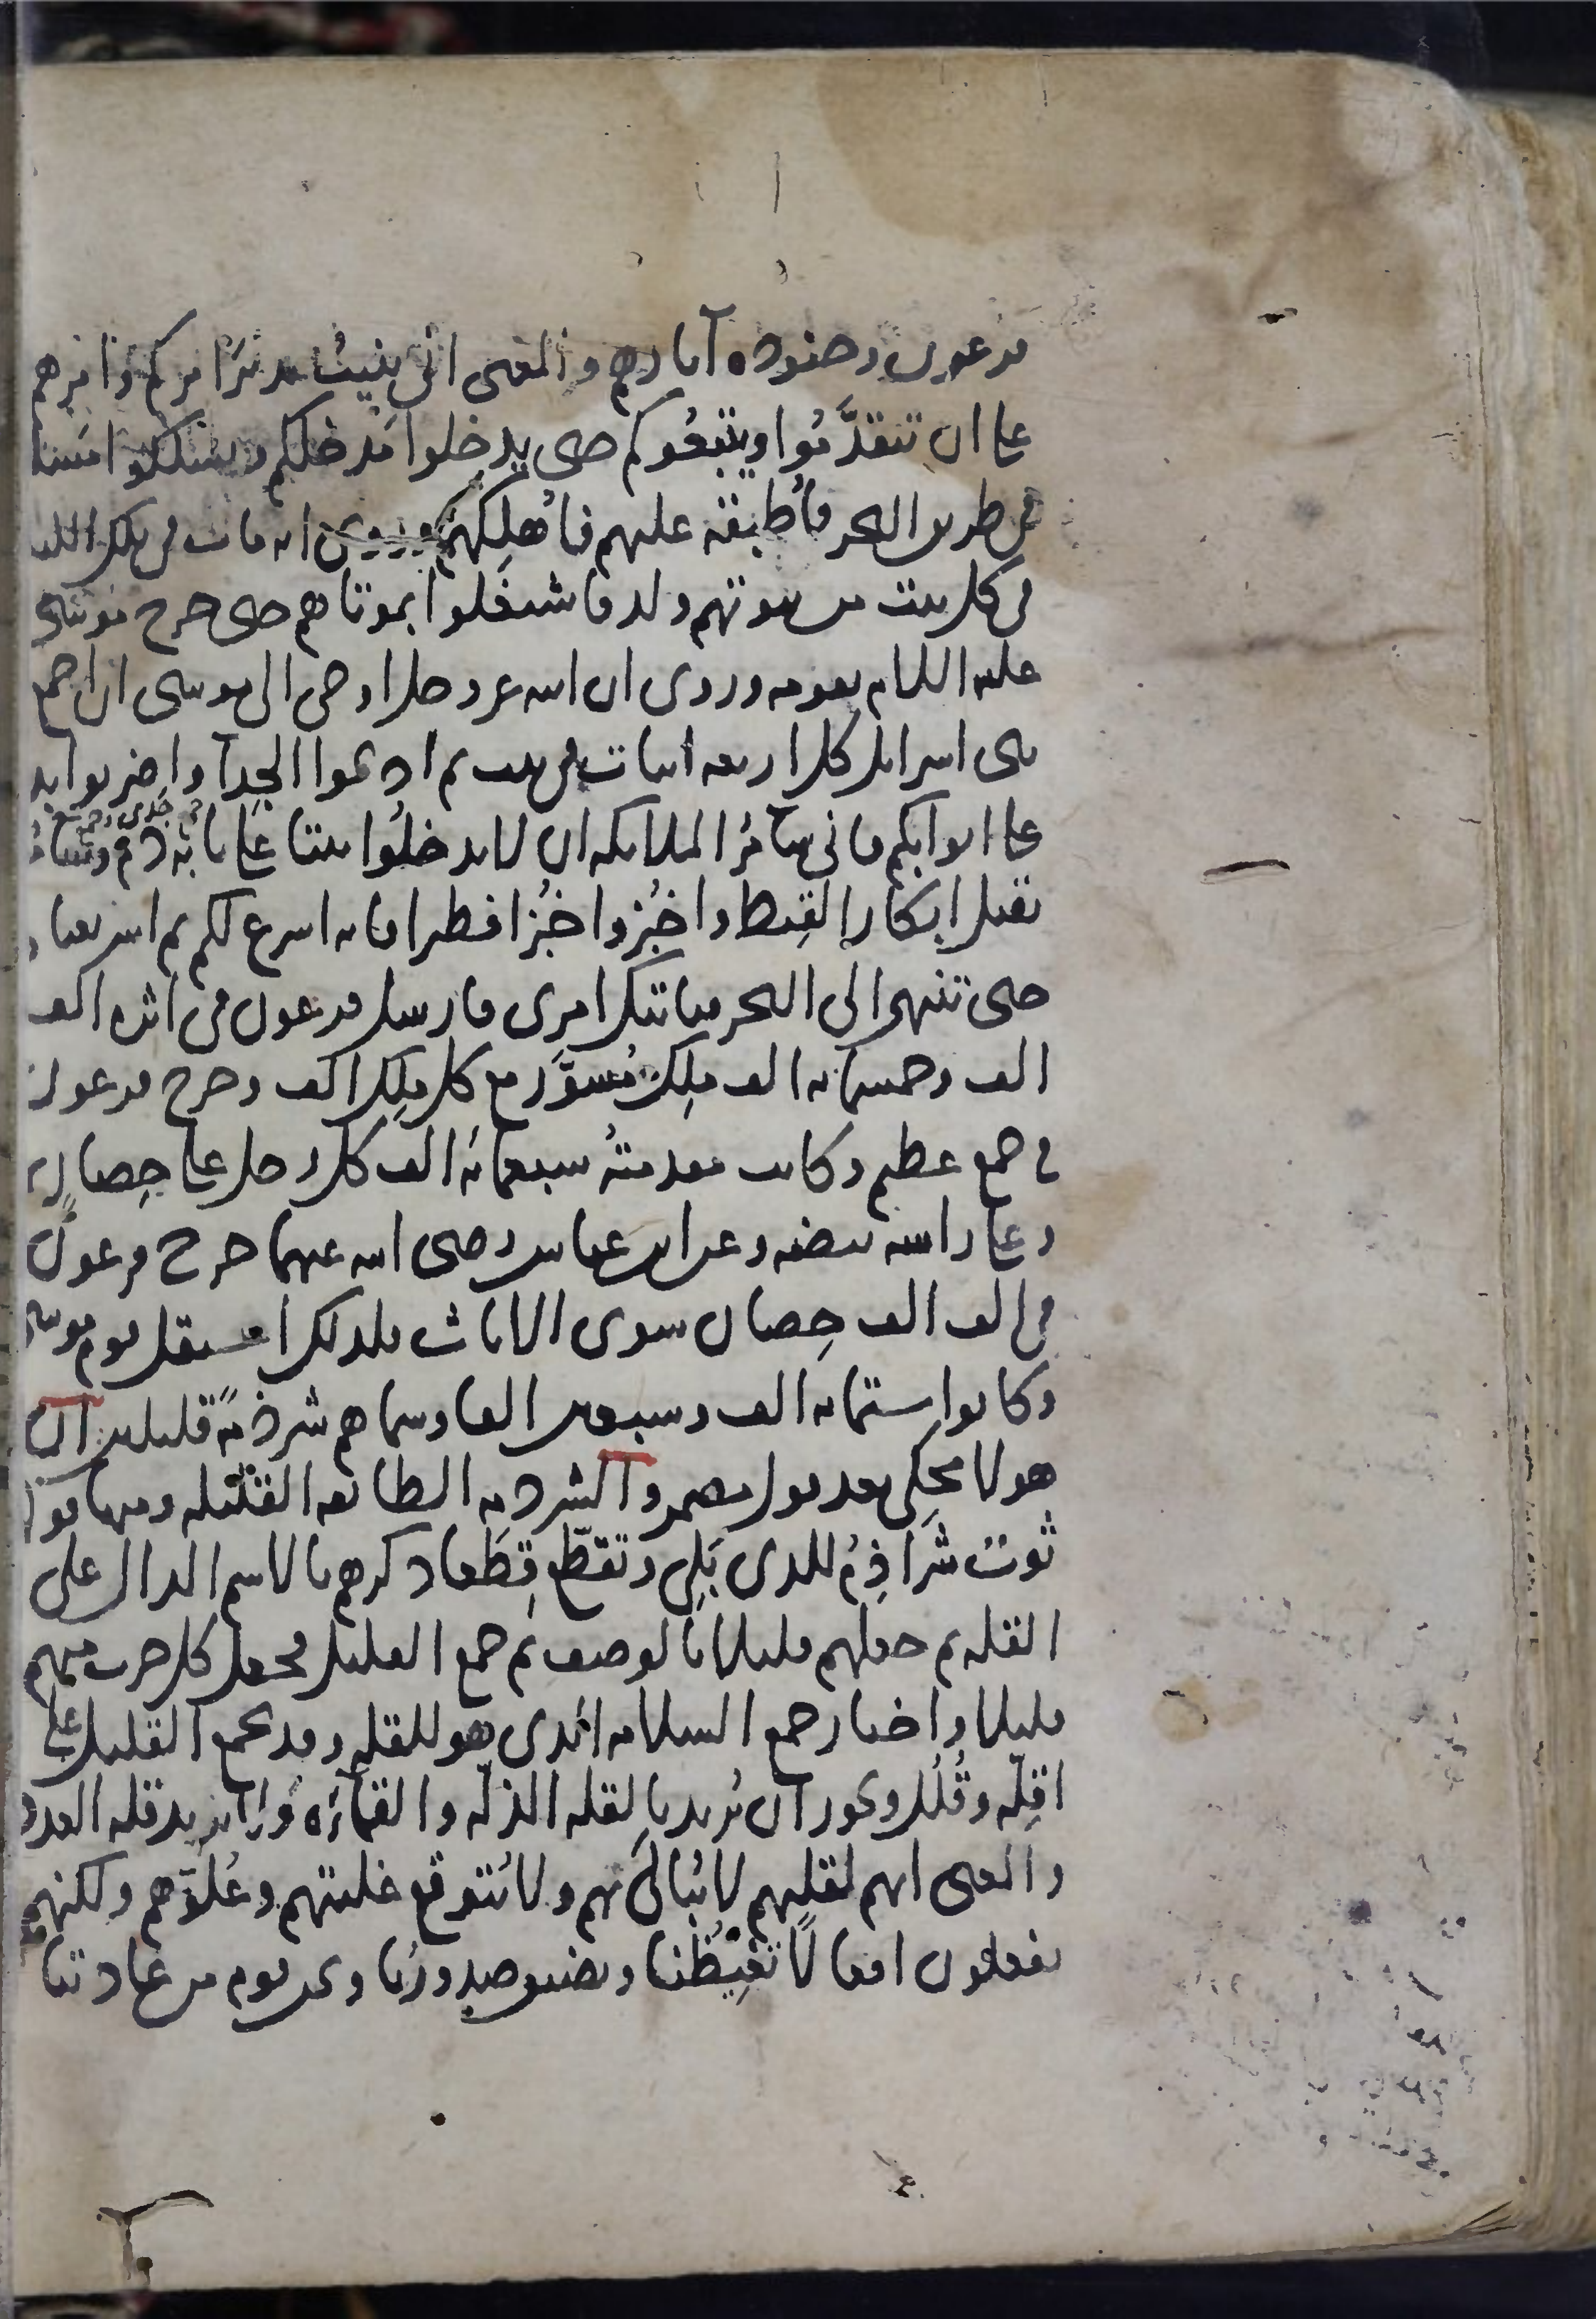 فرعون وجنوده آثارهم والمعنى انى بنيت تدبير امركم وامرهم
على ان تتقدَّمُوا ويتبعُوكم حتى يدخلوا مَدخلكم ويسلكوا
فى طريق البحر فأُطبقه عليهم فأُهلِكهم وروى انه مات فى تلك الليلة
فى كل بيت من بيوتهم ولد فاشتغَلوا بموتاهم حتى خرج موسى
عليه السلام بقومه وروى ان الله عز وجل اوحى الى موسى ان اجمع
بنى اسرايل كل اربعه ابيات فى بيت ثم اذبحوا الجِدآ واضربوا بد
على ابوابكم فانى سآمُر الملايكه ان لا يدخلُوا بيتا على بابه دم
بقتل ابكار القِبط واخبُزوا خُبزا فطيرا فانه اسرع لكم ثم اسر بعباد
حتى تنتهى الى البحر فياتيك امرِى فارسل فرعون فى اثره الف
الف وخمسمايه الف ملِك مُسوَّر مع كل ملِك الف وخرج فرعون
فى جمع عظيم وكانت مقدمتهُ سبعمايه الف كل رجل على حِصان
وعلى راسه بيضه وعن ابن عباس رضى الله عنهما خرج فرعون
فى الف الف حِصان سوى الاناث فلذلك استقل قوم موسى
وكانوا ستمايه الف وسبعين الفا وسماهم شرذمةً قليلين ان
هولا محكِى بعد قول مضمر والشرذمه الطايفه القليله ومنها قولـ
ثوب شراذِمُ للذى بَلِى وتقطّع قِطَعا ذكرهم بالاسم الدال على
القله ثم جعلهم قليلا بالوصف ثم جمع القليل فجعل كل حزب منهم
قليلا واختار جمع السلامه الذى هو للقله وقد يجمع القليل على
اقِلّه وقُلُل ويجوز ان يُريد بالقله الذلّه والقمآءَه ولا يريد قله العدد
والمعنى انهم لقلتهم لا يُبالَى بهم ولا يُتوقع غلبتهم وعُلوّهم ولكنهم
يفعلون افعالًا تغِيظُنا وتضيق صدورُنا ونحن قوم من عادتنا